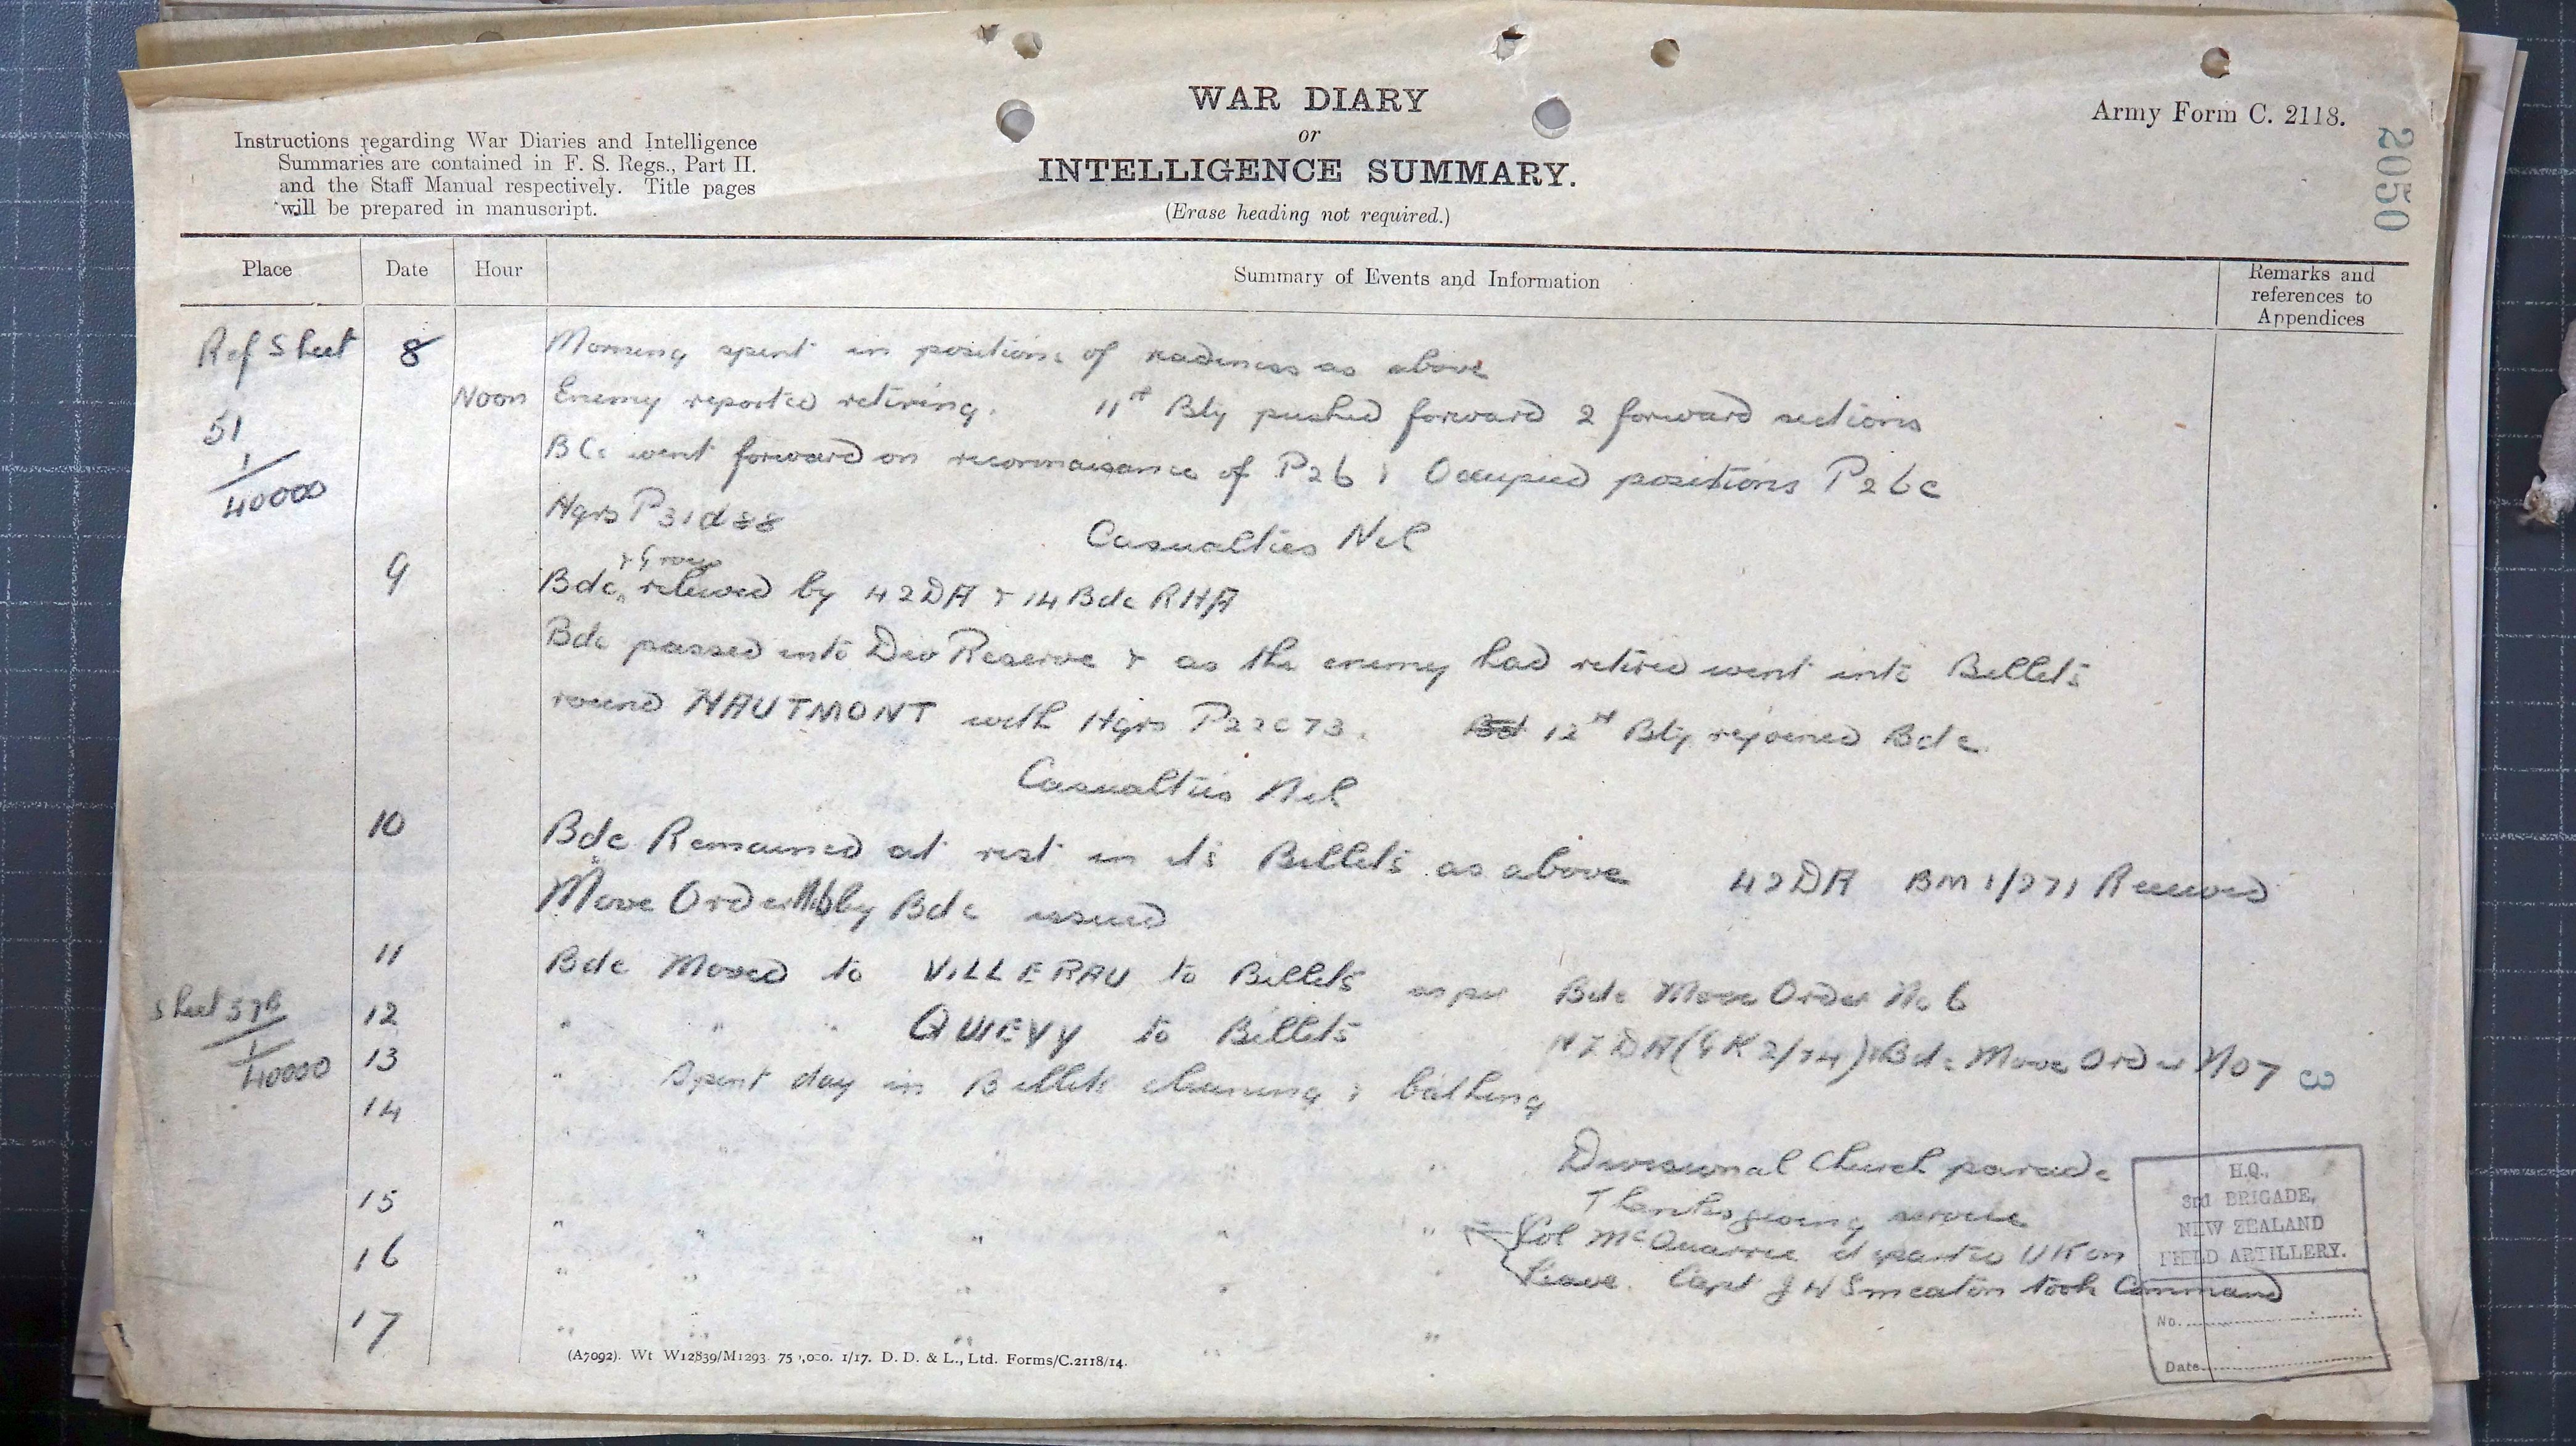 WAR DIARY
or
INTELLIGENCE SUMMARY.
(Erase heading not required.)
Army Form C. 2118.
2050
Instructions regarding War Diaries and Intelligence
Summaries are contained in F. S. Regs., Part II.
and the Staff Manual respectively. Title pages
will be prepared in manuscript.
Place Date Hour Summary of Events and Information Remarks and references to Appendices
Ref Sheet 8 Morning spent in positions of readiness as above
Noon Enemy reported retiring. 11th Bty pushed forward 2 forward sections
51
1/40000
BCs went forward on reconnaisance of P26 & Occupied positions P26c
Hqrs P31d88 Casualties Nil
9 Bde & Group relieved by 42DA & 14 Bde RHA
Bde passed into Div Reserve & as the enemy had retired went into Billets
round HAUTMONT with Hqrs P22c73. 12th Bty rejoined Bde.
Casualties Nil
10 Bde Remained at rest in its Billets as above 42DA BM1/271 Received
Move Order by Bde issued
11 Bde Moved to VILLERAU to Billets as per Bde Move Order No 6
Sheet 57B
1/40000
12 " " " QUIEVY to Billets NZDA (GK2/74) & Bde Move Order No 7
13 " Spent day in Billets cleaning & bathing
3
14 " " " " " Divisional Church parade
Thanksgiving service
15 " " " " " Col McQuarrie departed UK on
Leave. Capt J W Smeaton took Command
16 " " " " "
17 " " " " "
H.Q.,
3rd BRIGADE,
NEW ZEALAND
FIELD ARTILLERY.
No.
Date
(A7092). Wt W12839/M1293 75 ,000. 1/17. D. D. & L., Ltd. Forms/C.2118/14.